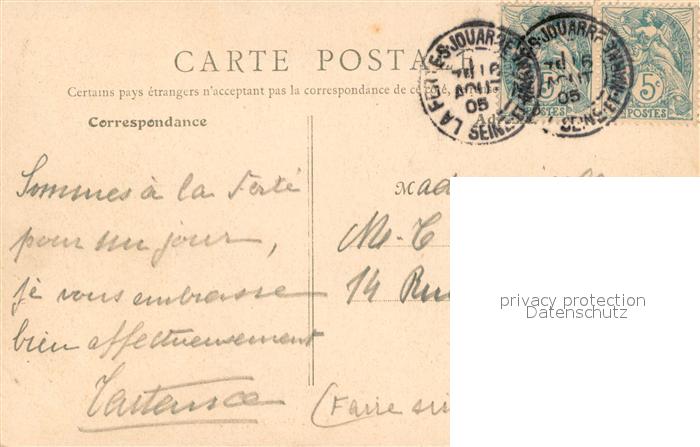 CARTE POSTALE
Certains pays étrangers n'acceptent pas la correspondance de ce côté,
Correspondance
LA FERTÉ-S-JOUARRE
SEINE-ET-MARNE
16
AOUT
05
5c
POSTES
5c
POSTES
Sommes à la Ferté
pour un jour,
je vous embrasse
bien affectueusement
Mad
M-C
14 Rue
(Faire
privacy protection
Datenschutz